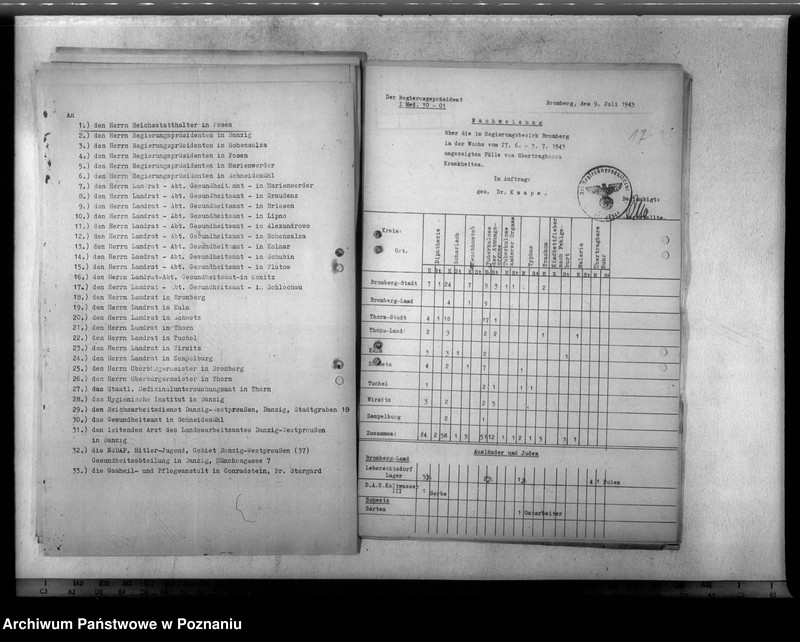 An
1.) den Herrn Reichsstatthalter in Posen
2.) den Herrn Regierungspräsidenten in Danzig
3.) den Herrn Regierungspräsidenten in Hohensalza
4.) den Herrn Regierungspräsidenten in Posen
5.) den Herrn Regierungspräsidenten in Marienwerder
6.) den Herrn Regierungspräsidenten in Schneidemühl
7.) den Herrn Landrat - Abt. Gesundheitsamt - in Marienwerder
8.) den Herrn Landrat - Abt. Gesundheitsamt - in Graudenz
9.) den Herrn Landrat - Abt. Gesundheitsamt - in Briesen
10.) den Herrn Landrat - Abt. Gesundheitsamt - in Lipno
11.) den Herrn Landrat - Abt. Gesundheitsamt - in Alexandrowo
12.) den Herrn Landrat - Abt. Gesundheitsamt - in Hohensalza
13.) den Herrn Landrat - Abt. Gesundheitsamt - in Kolmar
14.) den Herrn Landrat - Abt. Gesundheitsamt - in Schubin
15.) den Herrn Landrat - Abt. Gesundheitsamt - in Flatow
16.) den Herrn Landrat-Abt. Gesundheitsamt-in Konitz
17.) den Herrn Landrat - Abt. Gesundheitsamt - in Schlochau
18.) den Herrn Landrat in Bromberg
19.) den Herrn Landrat in Kulm
20.) den Herrn Landrat in Schwetz
21.) den Herrn Landrat in Thorn
22.) den Herrn Landrat in Tuchel
23.) den Herrn Landrat in Wirsitz
24.) den Herrn Landrat in Zempelburg
25.) den Herrn Oberbürgermeister in Bromberg
26.) den Herrn Oberbürgermeister in Thorn
27.) das Staatl. Medizinaluntersuchungsamt in Thorn
28.) das Hygienische Institut in Danzig
29.) den Reichsarbeitsdienst Danzig-Westpreußen, Danzig, Stadtgraben 18
30.) das Gesundheitsamt in Schneidemühl
31.) den leitenden Arzt des Landesarbeitsamtes Danzig-Westpreußen
in Danzig
32.) die NSDAP, Hitler-Jugend, Gebiet Danzig-Westpreußen (37)
Gesundheitsabteilung in Danzig, Münchengasse 7
33.) die Gauheil- und Pflegeanstalt in Conradstein, Pr. Stargard
Der Regierungspräsident
I Med. 10 - 01
Bromberg, den 9. Juli 1943
17
Nachweisung
über die im Regierungsbezirk Bromberg
in der Woche vom 27. 6. - 3. 7. 1943
angezeigten Fälle von übertragbaren
Krankheiten.
In Auftrag:
gez. Dr. Knape.
Beglaubigt:
Kreis:
Ort.
Diphtherie
Scharlach
Keuchhusten
Tuberkulose der Atmungsorgane
Tuberkulose anderer Organe
Typhus
Trachom
Kindbettfieber nach Fehlgeburt
Malaria
Übertragbare Ruhr
Bromberg-Stadt 7 1 24 7 9 3 1 1 2
Bromberg-Land 4 1 9
Thorn-Stadt 4 1 18 17 1
Thorn-Land 2 3 2 2 1 1
Kulm 1 3 1 2 1
Schwetz 4 2 1 7 1
Tuchel 1 2 1 1 1
Wirsitz 3 2 2 5
Zempelburg 2 1
Zusammen: 24 2 58 1 9 51 12 1 1 2 1 3 1 1
Ausländer und Juden
Bromberg-Land
Leberechtsdorf
Lager
4 1 Polen
D.A.G. Kaltwasser
III 1 Serbe
Schwetz
Sarten 1 Ostarbeiter
Archiwum Państwowe w Poznaniu